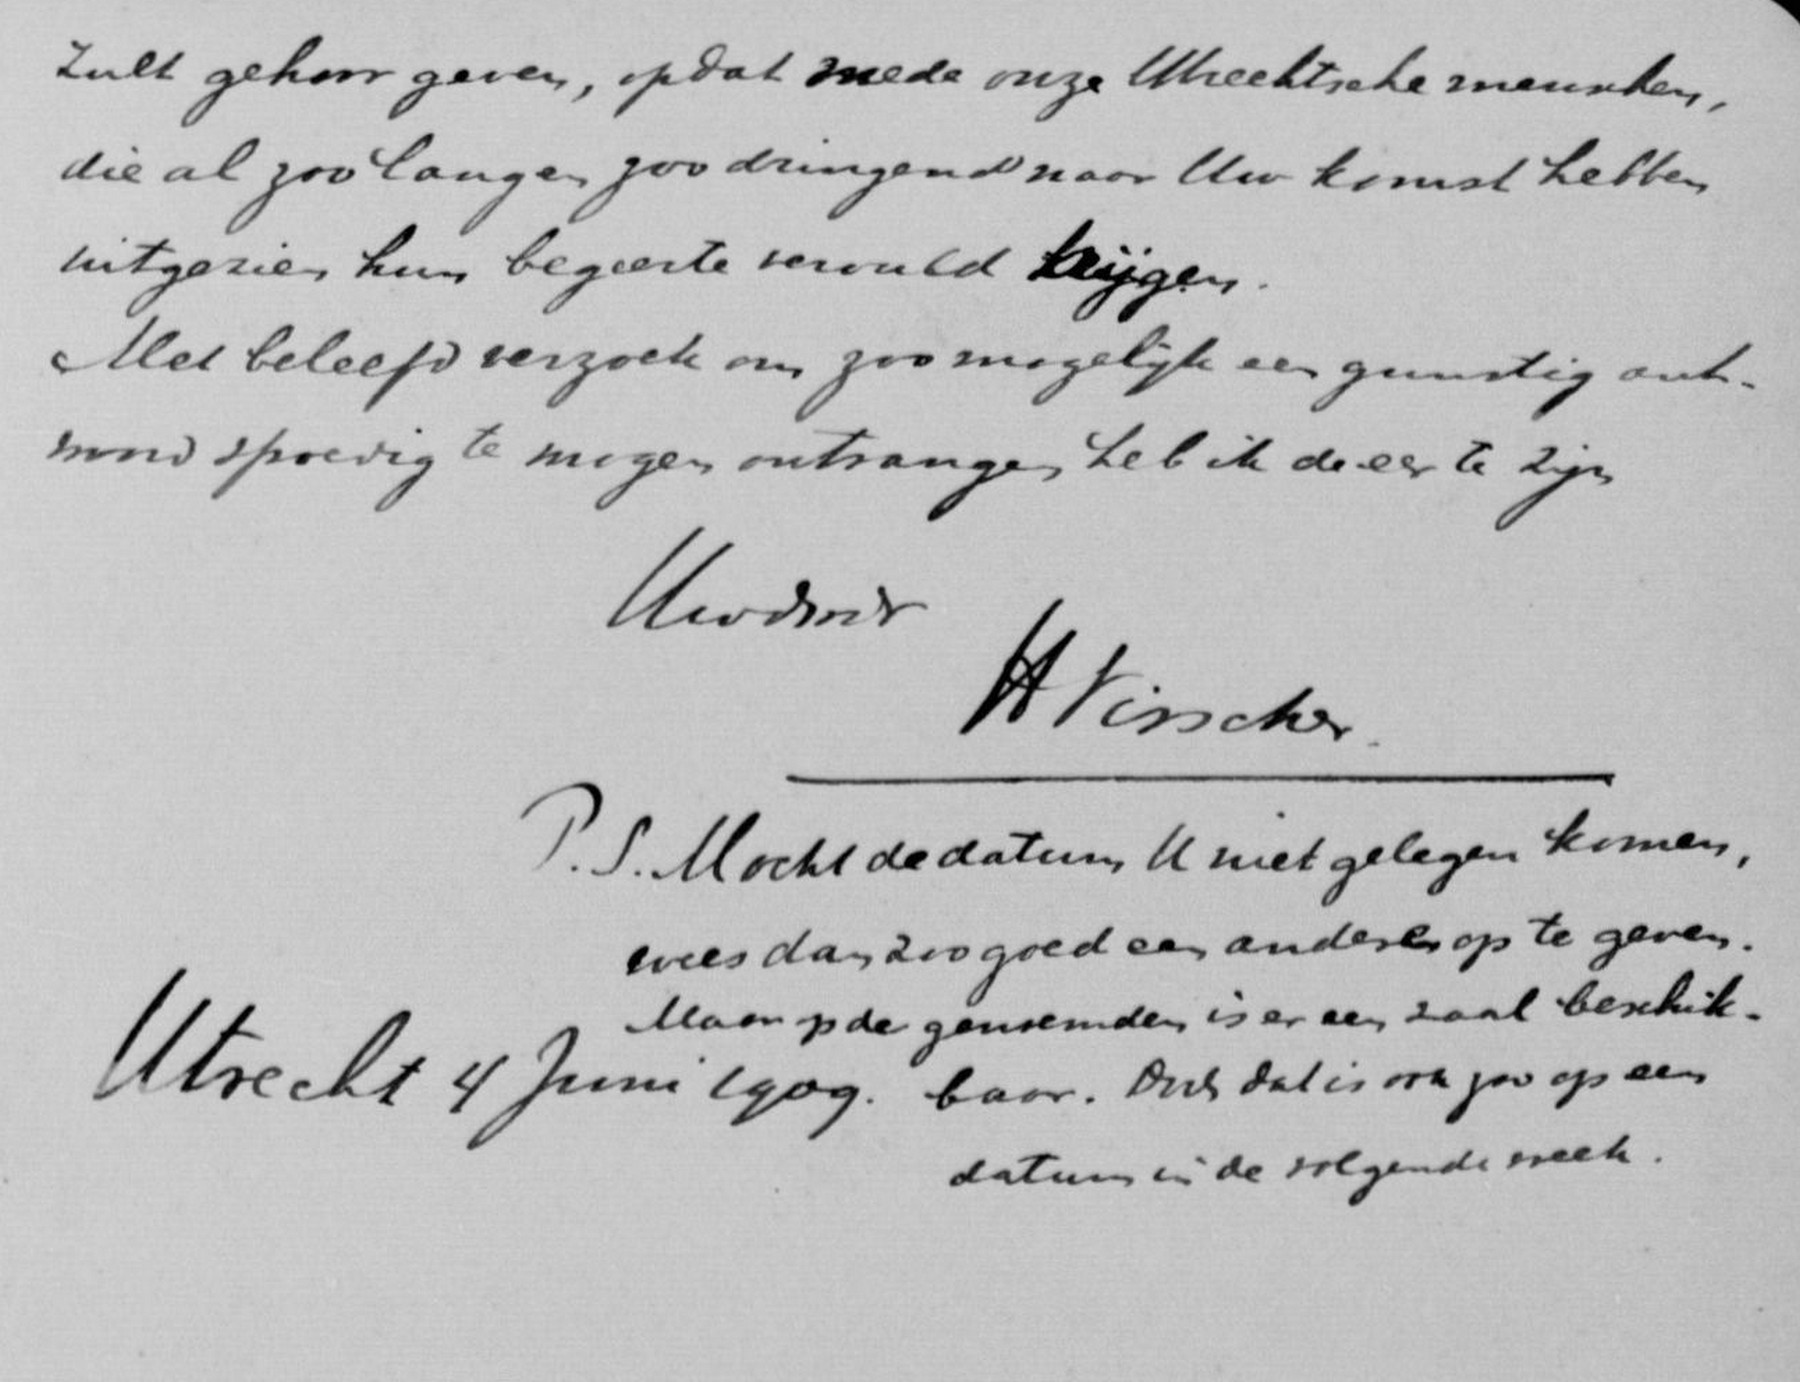 zult gehoor geven, opdat mede onze Utrechtsche menschen,
die al zoo lang en zoo dringend naar Uw komst hebben
uitgezien hun begeerte vervuld krijgen.
Met beleefd verzoek om zoo mogelijk een gunstig ant-
woord spoedig te mogen ontvangen, heb ik de eer te zijn
Uw dwdr
H Visscher.
P.S. Mocht de datum U niet gelegen komen,
wees dan zoo goed een anderen op te geven.
Maar op de genoemden is er een zaal beschik-
Utrecht 4 Juni 1909.
baar. Doch dat is ook zoo op een
datum in de volgende week.